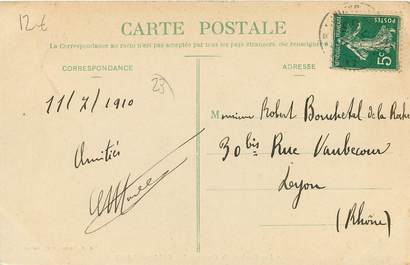 12€
CARTE POSTALE
La Correspondance au recto n'est pas acceptée par tous les pays étrangers. (Se renseigner
CORRESPONDANCE
ADRESSE
23
11/7/1910
Amitiés
Monsieur Robert Bouchetal de la Roche
30 bis Rue Vaubecour
Lyon
(Rhône)
POSTES
5c